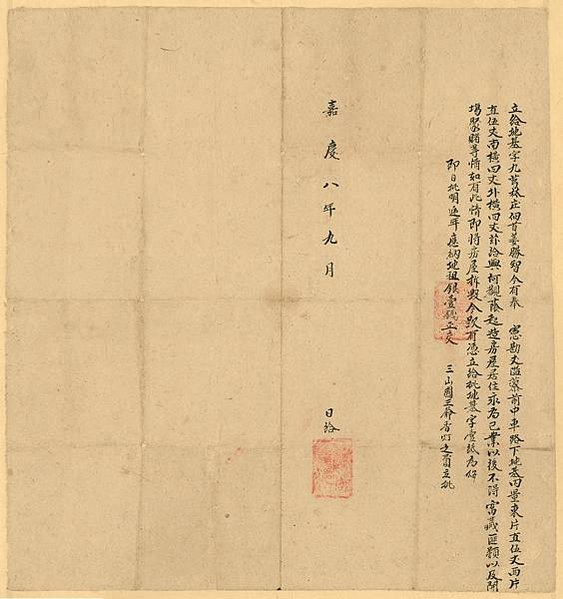 立給地基字九芎林庄佃首姜勝智今有奉 憲勘丈蓝蔡前中車路下地基四量東片直伍丈西片
直伍丈南橫四丈北橫四丈給與何觀蔭起造房屋居住永為己業以後不得窩藏匪類以及開
場聚賭等情如有此情即將房屋拆毀今欲有憑立給批地基字壹紙為炤
即日批明逐年應納地租銀壹錢正交 三山國王爺香灯之資立批
嘉慶八年九月 日給